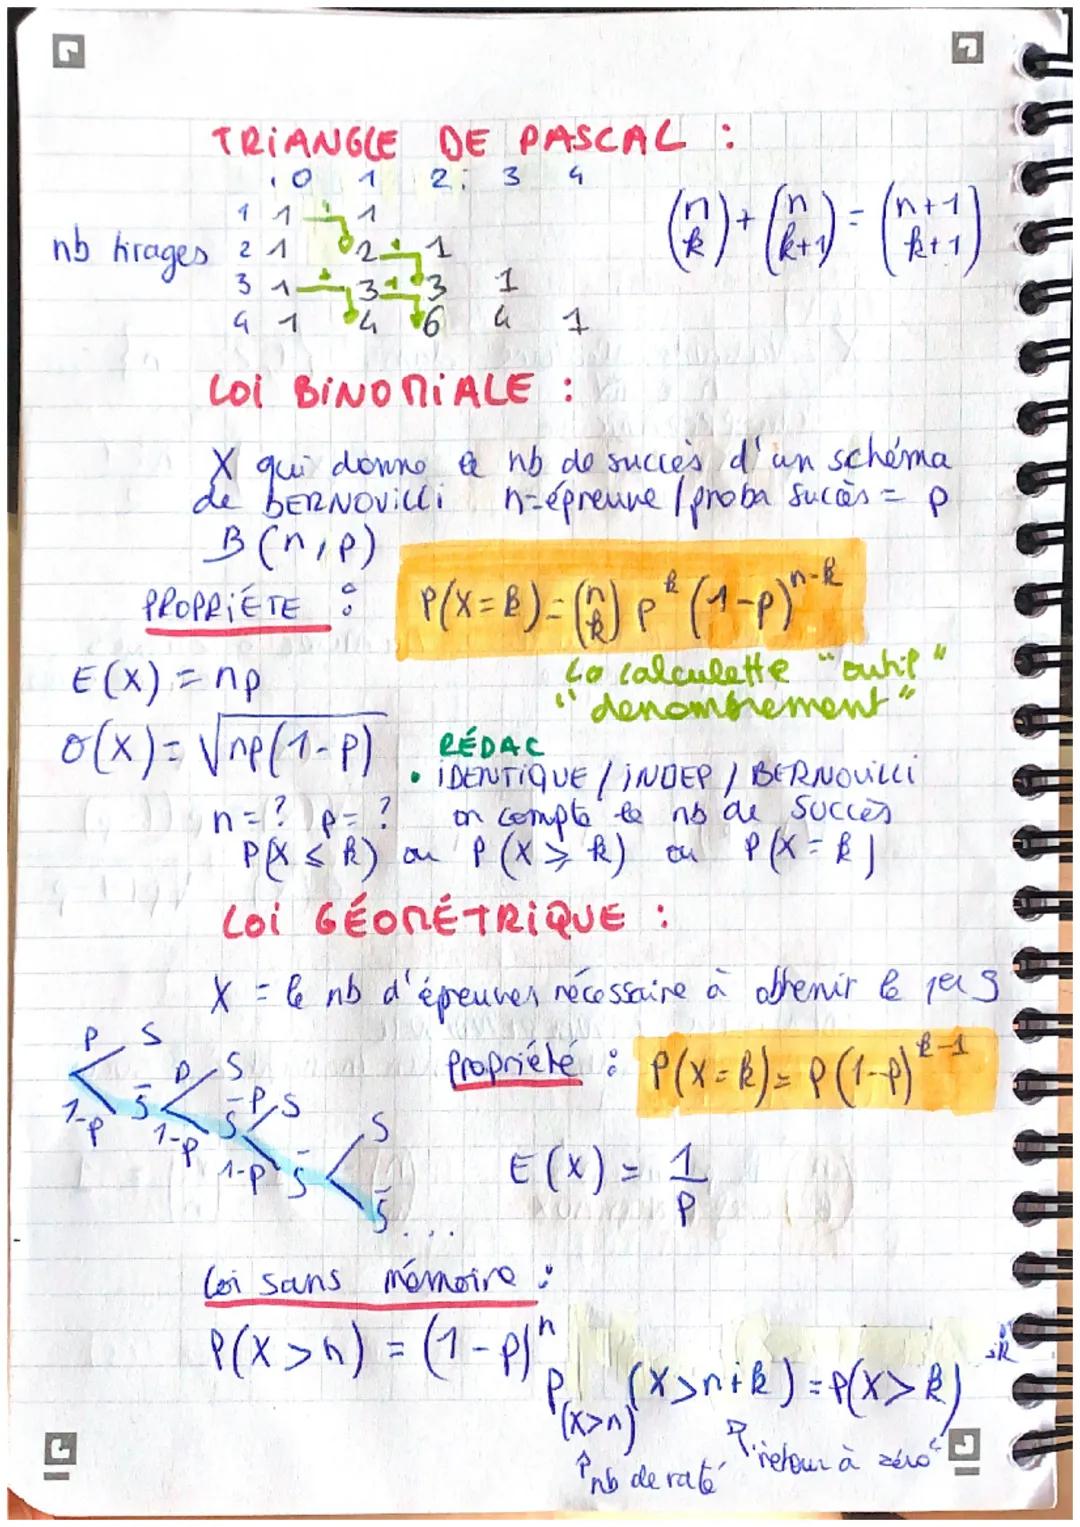 TRIANGLE DE PASCAL :
0 1 2 3 4
1 1 + 1
nb tirages 2 1 2 + 1
3 1 + 3 + 3 1
4 1 4 6 4 1
(n k) + (n k+1) = (n+1 k+1)
LOI BINOMIALE :
X qui donne le nb de succès d'un schéma
de BERNOUILLI n=épreuve / proba succès = p
B(n,p)
PROPRIÉTE :
P(X=k)=(n k) p^k (1-p)^n-k
La calculette "outil"
"denombrement"
E(X) = np
σ(X) = √np(1-p)
RÉDAC
• IDENTIQUE / INDEP / BERNOUILLI
on compte le nb de succès
n=? p=?
P(X ≤ k) ou P(X ≥ k) ou P(X=k)
LOI GÉOMÉTRIQUE :
X = le nb d'épreuves nécessaire à obtenir le 1er S
P S
1-p S̄ P S
1-p S̄ P S
1-p S̄ S
S̄ ...
Propriété : P(X=k)= p(1-p)^k-1
E(X) = 1/p
Loi sans mémoire :
P(X>n) = (1-p)^n
P(X>n) (X>n+k) = P(X>k)
↑nb de raté "retour à zéro"